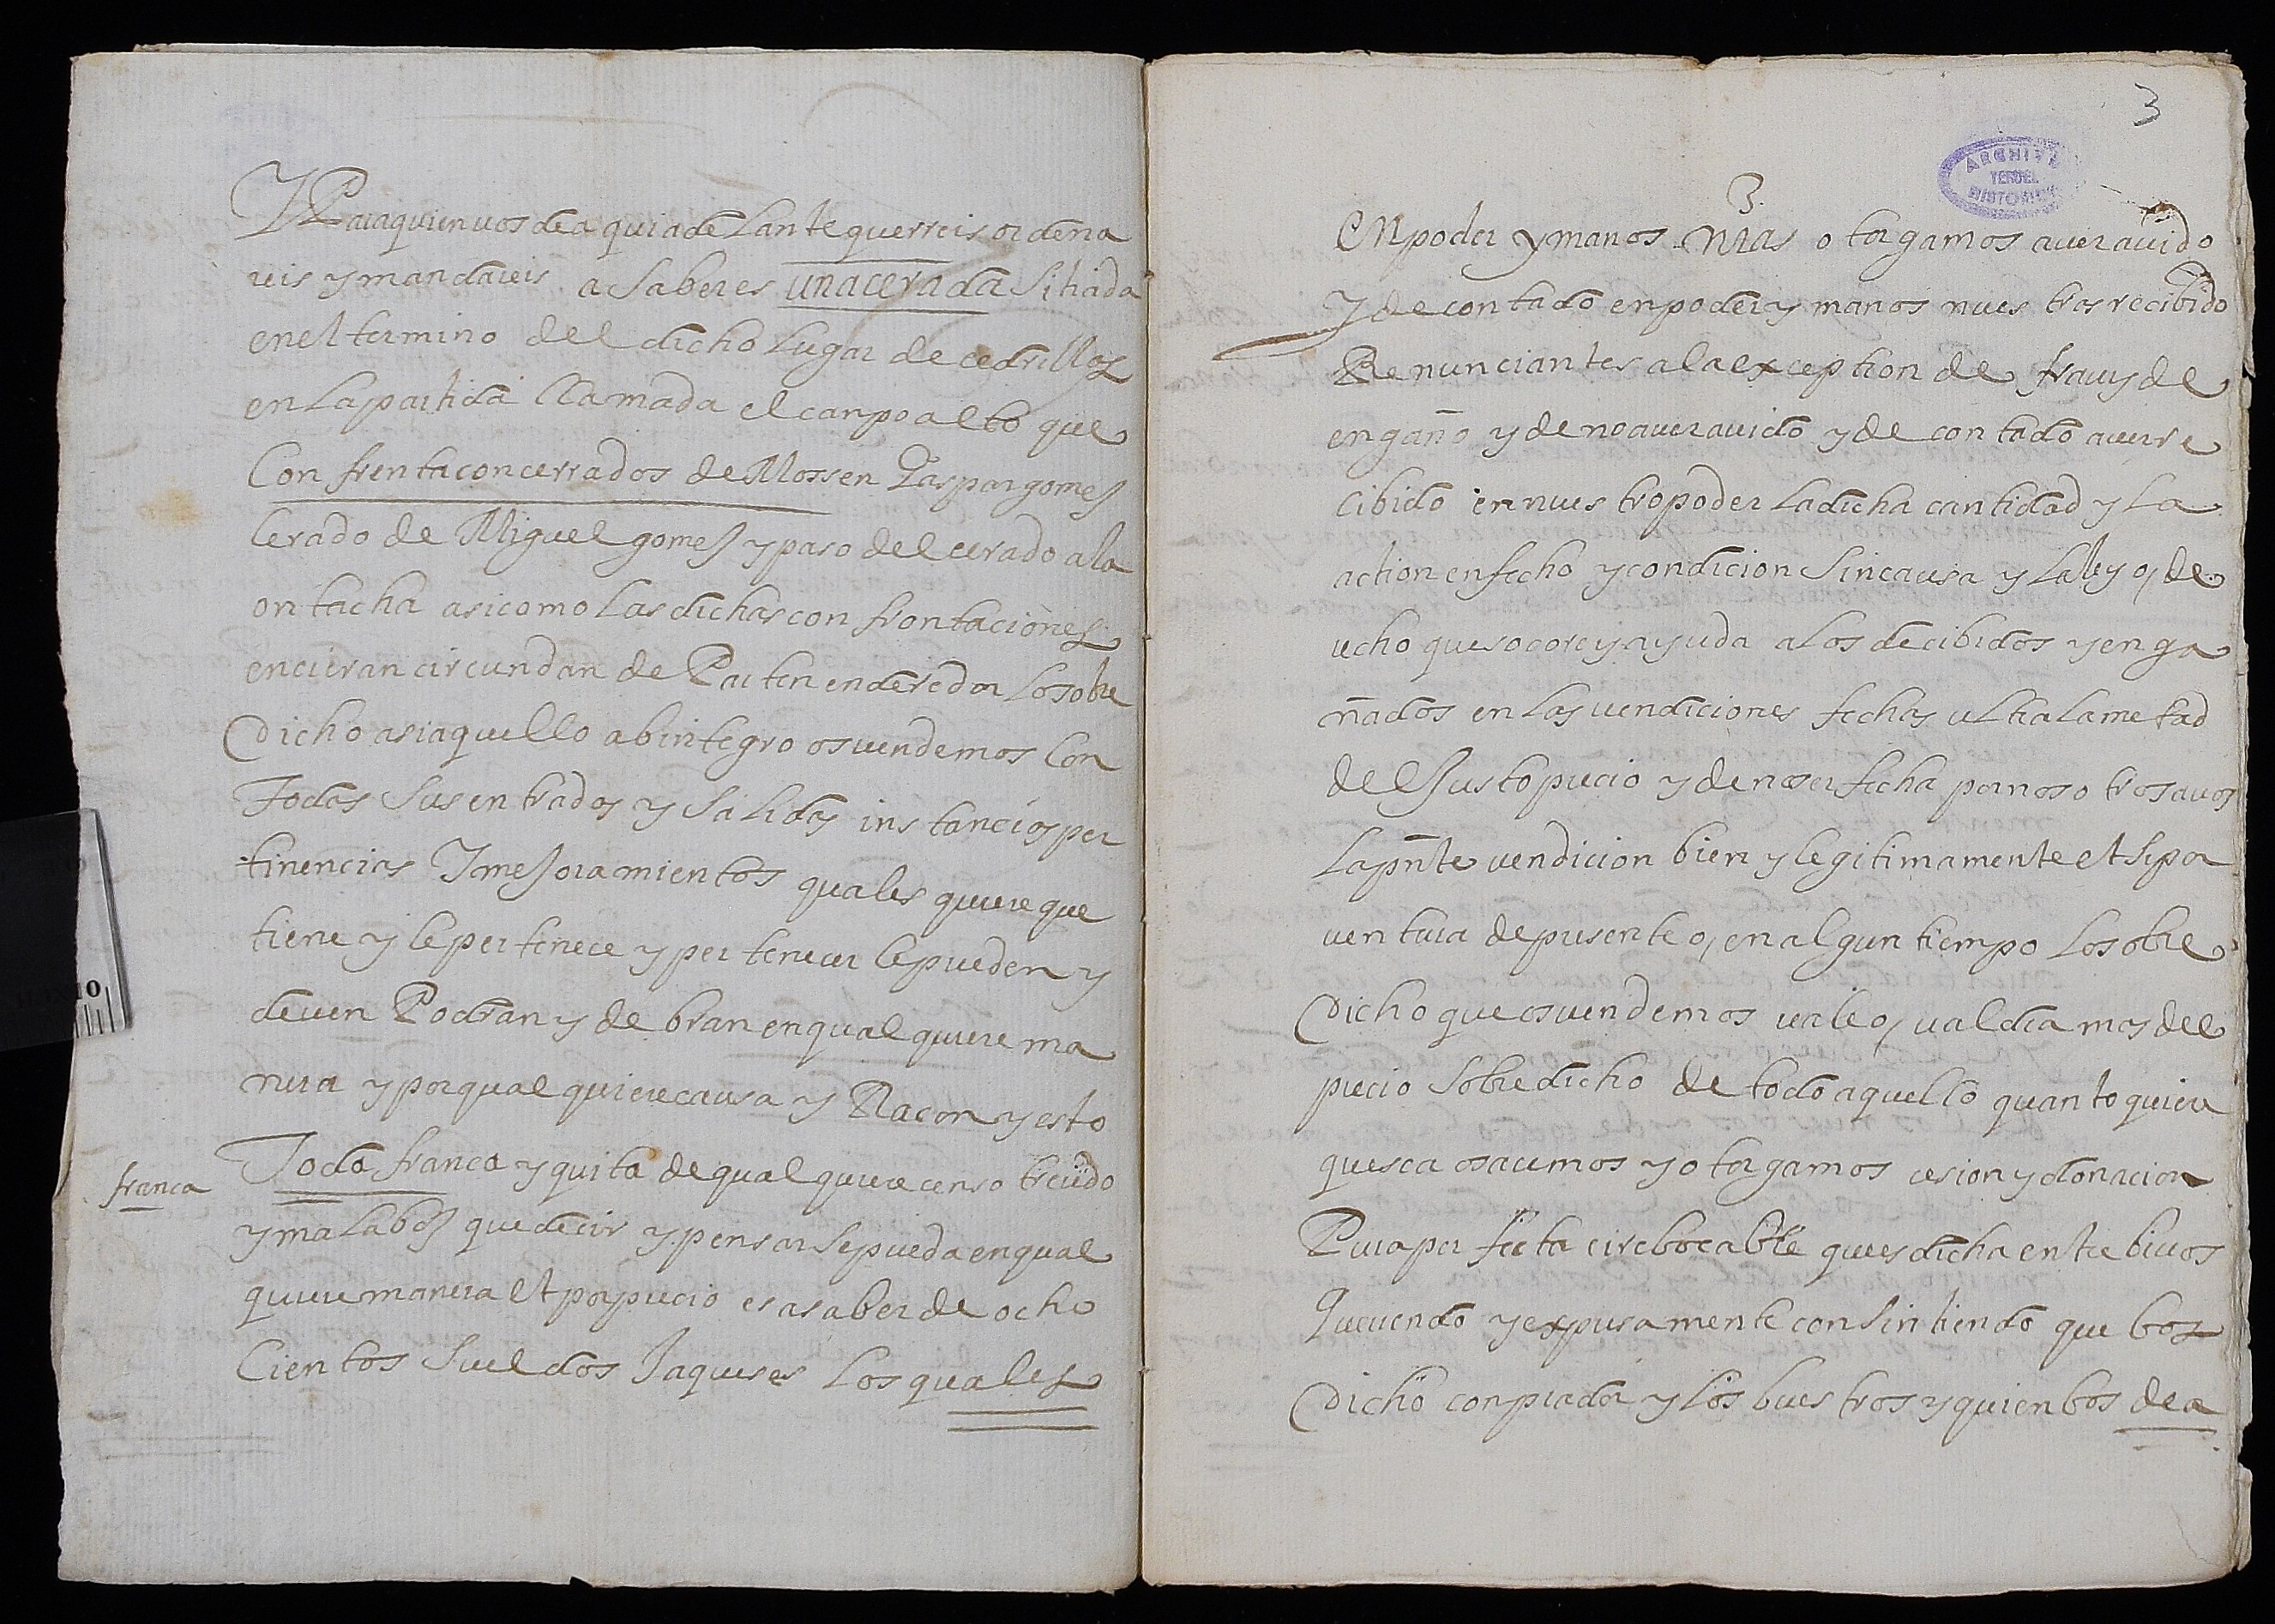 Y Para quien vos de aqui adelante querreis ordena
reis y mandareis a saber es una cerada sitiada
en el termino del dicho lugar de cedrillas
en la partida llamada el canpo alto que
Confrenta con cerrados de Mossen Gaspar gomez
Cerado de Miguel gomez y paso del cerado a la
ontacha asi como las dichas confrontaciones
encieran circundan de Parten en derredor lo sobre
Dicho asi aquello ab integro os vendemos Con
Todas sus entradas y salidas instancias per
tinencias Y mejoramientos quales quiere que
tiene y le pertenece y pertenecer le pueden y
deven Podran y debran en qual quiere ma
nera y por qual quiere causa y Racon y esto
franca
Toda franca y quita de qual quiere censo treudo
y mala boz que decir y pensar se pueda en qual
quiere manera et por precio es a saber de ocho
Cientos sueldos Jaqueses los quales
3
ARCHIVO
TERUEL
HISTORICO
3.
En poder y manos nras otorgamos aver avido
Y de contado en poder y manos nuestras recibido
Renunciantes a la exception de frau y de
engaño y de no aver avido y de contado aver re
cibido en nuestro poder la dicha cantidad y la
action en fecho y condicion sin causa y la ley o, de
recho que socore y ayuda a los decibidos y enga
ñados en las vendiciones fechas ultra la metad
del Justo precio y de no ser fecha por nosotros a vos
la pnte vendicion bien y legitimamente et si por
ventura de presente o, en algun tiempo lo sobre
Dicho que os vendemos vale o, valdra mas del
precio sobredicho de todo aquello quanto quiere
que sea os acemos y otorgamos cesion y donacion
Pura perfecta e irebocable que es dicha entre bivos
Queriendo y expresamente consintiendo que bos
Dicho conprador y los buestros y quien bos de a